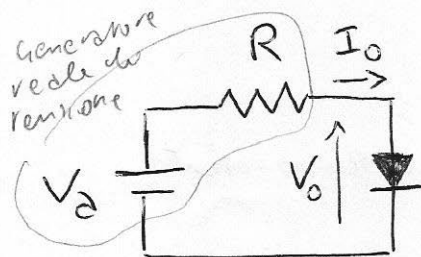 Generatore
reale di
tensione
R
I₀
Va
V₀